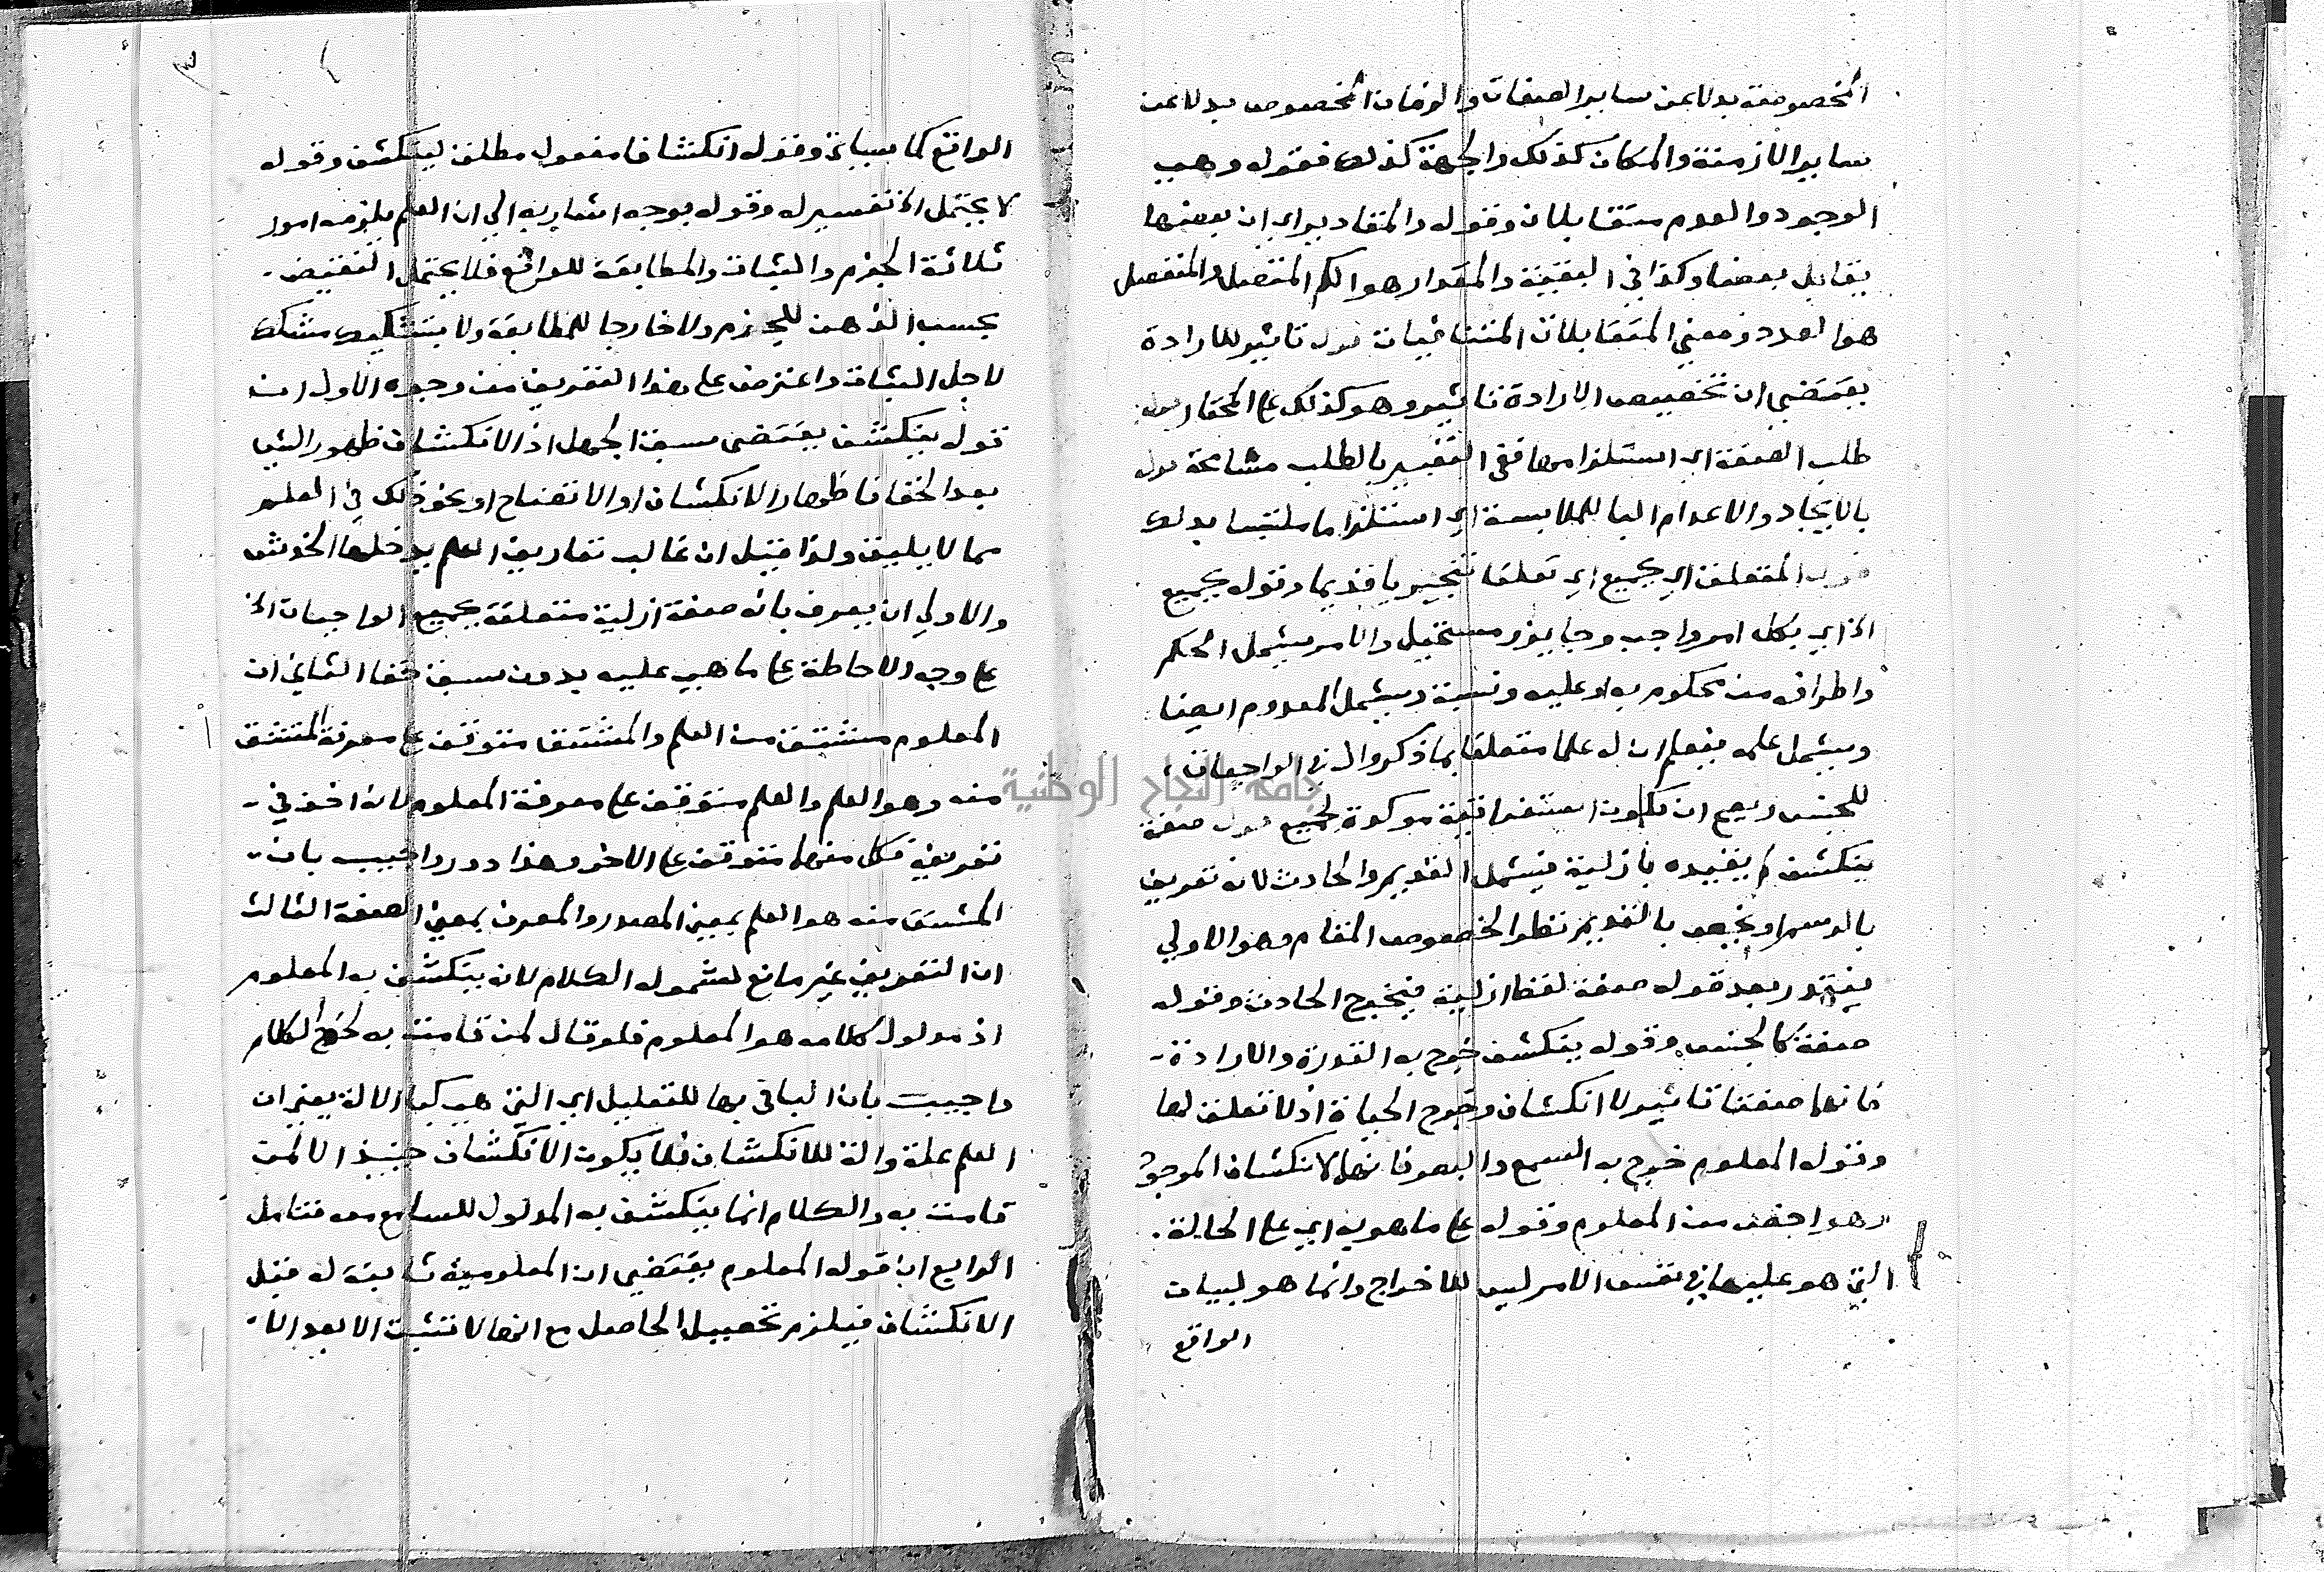 المخصوصة بدلا عن ساير الصفات والزمان المخصوص بدلا عن
ساير الازمنة والمكان كذلك والجهة كذلك فقوله وهي
الوجود والعدم متقابلان وقوله والمقادير اي ان بعضها
يقابل بعضا وكذا في البقية والمقدار هو الكم المتصل والمنفصل
هو العدد ومعني المتقابلات المتنافيات قوله تاثير للارادة
يقتضي ان تخصيص الارادة تاثير وهو كذلك علي المختار قوله
طلب الصفة اي استلزامها ففي التفسير بالطلب مسامحة قوله
بالايجاد والاعدام البا للملابسة اي استلزاما ملتبسا بذلك
قوله المتعلق اي بجميع اي تعلقا تنجيزيا قديما وقوله بجميع
الخ اي بكل امر واجب وجايز ومستحيل والامر يشمل الحكم
واطرافه من محكوم به او عليه ونسبة ويشمل المعدوم ايضا
ويشمل علمه فيعلم ان له علما متعلقا بما ذكر وال في الواجبات
للجنس ويصح ان تكون استغراقية موكدة لجميع قوله صفة
ينكشف لم يقيده بازلية فيشمل القديم والحادث لانه تعريف
بالرسم او يخص بالقديم نظرا لخصوص المقام وهو الاولي
فيقدر بعد قوله صفة لفظ ازلية فيخرج الحادث وقوله
صفة كالجنس وقوله ينكشف خرج به القدرة والارادة
فانهما صفتا تاثير لا انكشاف وخرج الحياة اذ لا تعلق لها
وقوله المعلوم خرج به السمع والبصر فانهما لانكشاف الموجود
وهو اخص من المعلوم وقوله علي ما هو به اي علي الحالة
التي هو عليها في نفس الامر ليس للاخراج وانما هو لبيان
الواقع
٣
الواقع كما سياتي وقوله انكشافا مفعول مطلق لينكشف وقوله
لا يحتمل الخ تفسير له وقوله بوجه اشار به الي ان العلم يلزمه امور
ثلاثة الجزم والثبات والمطابقة للواقع فلا يحتمل النقيض
بحسب الذهن للجزم ولا خارجا للمطابقة ولا بتشكيك مشكك
لاجل الثبات واعترض علي هذا التعريف من وجوه الاول ان
قوله ينكشف يقتضي سبق الجهل اذ الانكشاف ظهور الشي
بعد الخفا فاظهار الانكشاف او الاتضاح او نحو ذلك في العلم
مما لا يليق ولذا قيل ان غالب تعاريف العلم يدخلها الخدش
والاولي ان يعرف بانه صفة ازلية متعلقة بجميع الواجبات الخ
علي وجه الاحاطة علي ما هي عليه بدون سبق خفا الثاني ان
المعلوم مشتق من العلم والمشتق متوقف علي معرفة المشتق
منه وهو العلم والعلم متوقف علي معرفة المعلوم لانه اخذ في
تعريفه فكل منهما متوقف علي الاخر وهذا دور واجيب بان
المشتق منه هو العلم بمعني المصدر والمعرف بمعني الصفة الثالث
ان التعريف غير مانع لشموله الكلام لان ينكشف به المعلوم
اذ مدلول كلامه هو المعلوم فلو قال لمن قامت به لخرج الكلام
واجيب بان البا في بها للتعليل اي التي هي كبا الالة يعني ان
العلم علة والة للانكشاف فلا يكون الانكشاف حينيذ الا لمن
قامت به والكلام انما ينكشف به المدلول للسامع معه فتامل
الرابع ان قوله المعلوم يقتضي ان المعلومية ثابتة له قبل
الانكشاف فيلزم تحصيل الحاصل مع انها لا تثبت الا بعد الا
جامعة النجاح الوطنية